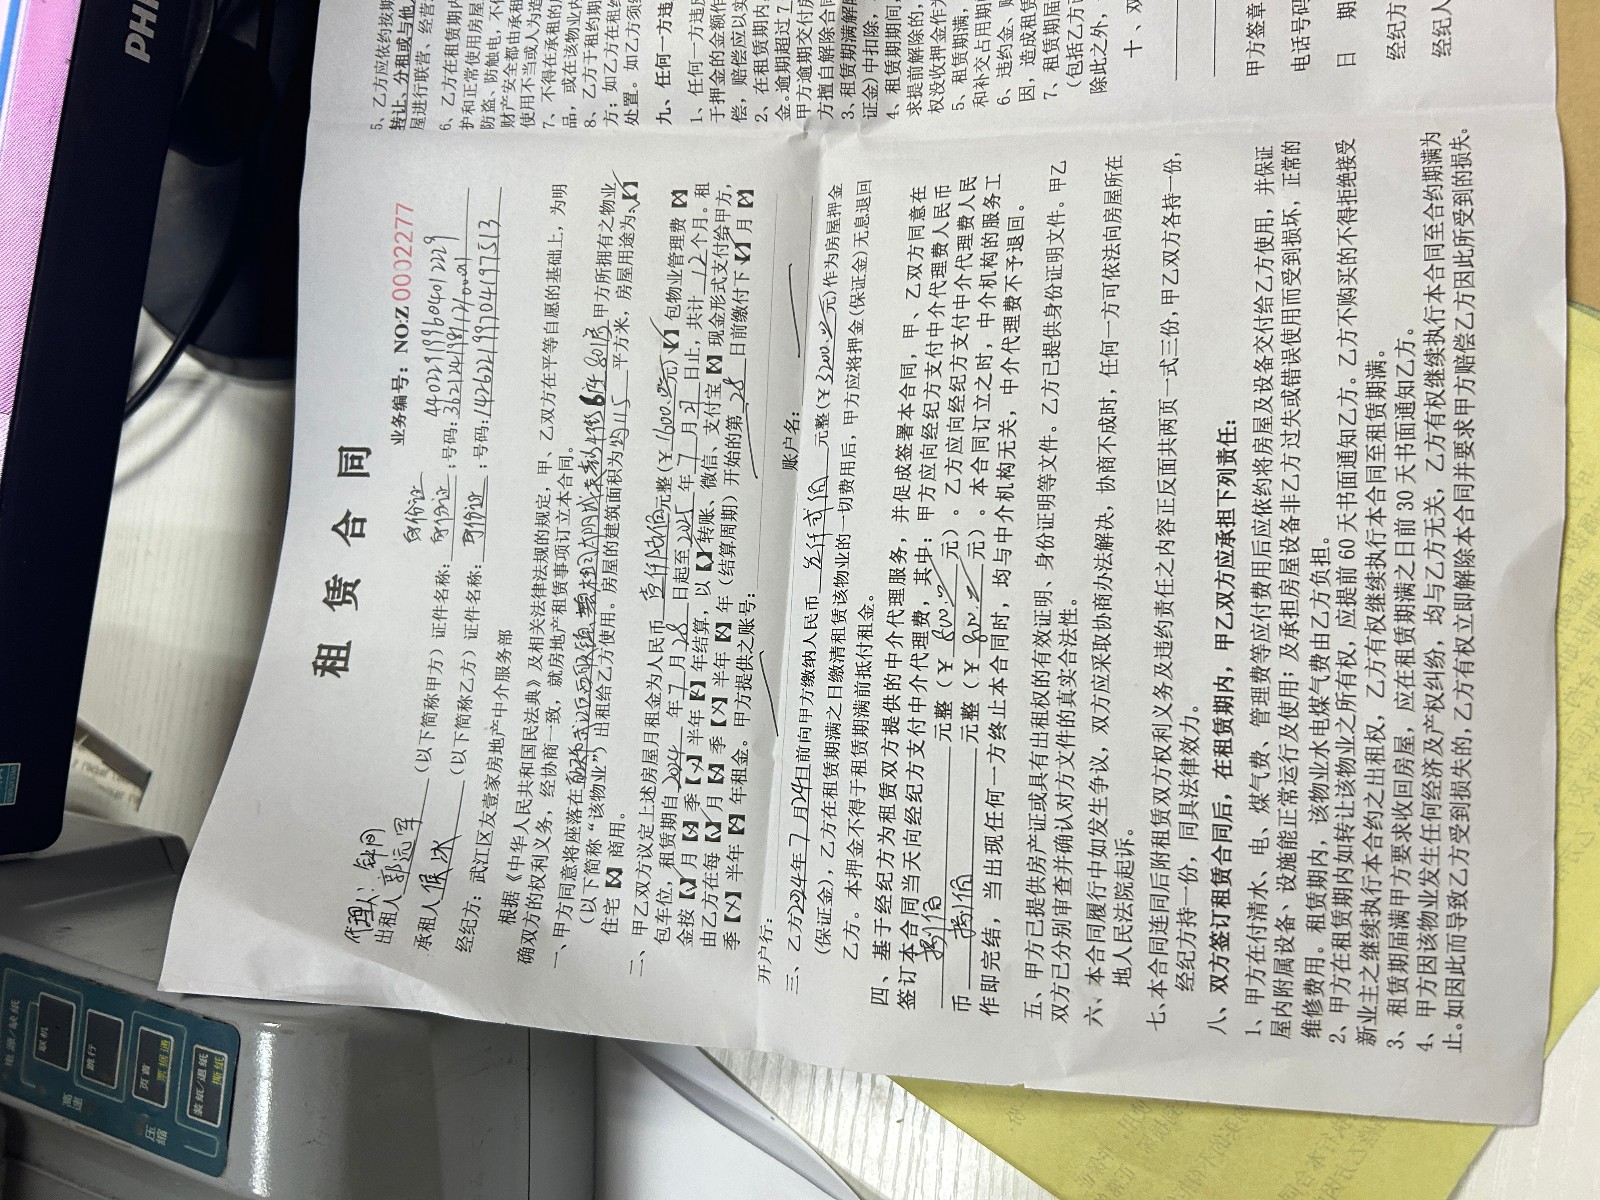 租 赁 合 同
业务编号：NO:Z 0002277
代理人：钟
身份证 440229199604012229
出租人 郭运军 （以下简称甲方）证件名称：身份证；号码：
承租人 侯冰 （以下简称乙方）证件名称：身份证；号码：142622199704197513
经纪方：武江区友壹家房地产中介服务部
根据《中华人民共和国民法典》及相关法律法规的规定，甲、乙双方在平等自愿的基础上，为明
确双方的权利义务，经协商一致，就房地产租赁事项订立本合同。
一、甲方同意将座落在 甲方所拥有之物业
（以下简称“该物业”）出租给乙方使用。房屋的建筑面积为 115 平方米，房屋用途为：【√】
住宅【×】商用。
二、甲乙双方议定上述房屋月租金为人民币 壹仟陆佰 元整（¥ 1600.00 元）【√】包物业管理费【×】
包车位，租赁期自 2024 年 7 月 28 日起至 2025 年 7 月 27 日止，共计 12 个月。租
金按【√】月【×】季【×】半年【×】年结算，以【√】转账、微信、支付宝【×】现金形式支付给甲方，
由乙方在每【√】月【×】季【×】半年【×】年（结算周期）开始的第 28 日前缴付下【√】月【×】
季【×】半年【×】年租金。甲方提供之账号：
开户行： 账户名：
三、乙方2024年 7 月24日前向甲方缴纳人民币 叁仟贰佰 元整（¥ 3200.00 元）作为房屋押金
（保证金），乙方在租赁期满之日缴清租赁该物业的一切费用后，甲方应将押金（保证金）无息退回
乙方。本押金不得于租赁期满前抵付租金。
四、基于经纪方为租赁双方提供的中介代理服务，并促成签署本合同，甲、乙双方同意在
签订本合同当天向经纪方支付中介代理费，其中：甲方应向经纪方支付中介代理费人民币
捌佰 元整（¥ 800.00 元）。乙方应向经纪方支付中介代理费人民
币 捌佰 元整（¥ 800.00 元）。本合同订立之时，中介机构的服务工
作即完结，当出现任何一方终止本合同时，均与中介机构无关，中介代理费不予退回。
五、甲方已提供房产证或具有出租权的有效证明、身份证明等文件。乙方已提供身份证明文件。甲乙
双方已分别审查并确认对方文件的真实合法性。
六、本合同履行中如发生争议，双方应采取协商办法解决，协商不成时，任何一方可依法向房屋所在
地人民法院起诉。
七、本合同连同后附租赁双方权利义务及违约责任之内容正反面共两页一式三份，甲乙双方各持一份，
经纪方持一份，同具法律效力。
八、双方签订租赁合同后，在租赁期内，甲乙双方应承担下列责任：
1、甲方在付清水、电、煤气费、管理费等应付费用后应依约将房屋及设备交付给乙方使用，并保证
屋内附属设备、设施能正常运行及使用；及承担房屋设备非乙方过失或错误使用而受到损坏，正常的
维修费用。租赁期内，该物业水电煤气费由乙方负担。
2、甲方在租赁期内如转让该物业之所有权，应提前 60 天书面通知乙方。乙方不购买的不得拒绝接受
新业主之继续执行本合约之出租权，乙方有权继续执行本合同至租赁期满。
3、租赁期届满甲方要求收回房屋，应在租赁期满之日前 30 天书面通知乙方。
4、甲方因该物业发生任何经济及产权纠纷，均与乙方无关，乙方有权继续执行本合同至合约期满为
止。如因此而导致乙方受到损失的，乙方有权立即解除本合同并要求甲方赔偿乙方因此所受到的损失。
5、乙方应依约按期
转让、分租或与他人
屋进行联营、经营
6、乙方在租赁期内
护和正常使用房屋
防盗、防触电，不
财产安全都由承租
使用不当或人为造
7、不得在承租的
品，或在该物业内
8、乙方于租约期
方；如乙方在租
处置。如乙方须
九、任何一方违
1、任何一方违反
于押金的金额作
偿，赔偿应以实
2、在租赁期内，
金。逾期超过 7
甲方逾期交付房
方擅自解除合同
3、租赁期满解除
证金）中扣除，
4、租赁期期间，
求提前解除的，
权没收押金作为
5、租赁期满，
和补交占用期
6、违约金、
因，造成租赁
7、租赁期届
（包括乙方
除此之外，
十、双
甲方签章
电话号码
日 期
经纪方
经纪人
PHI
电源/缺纸
联机
跳行
高速
页首
票据通
压缩
装纸/退纸
撕纸